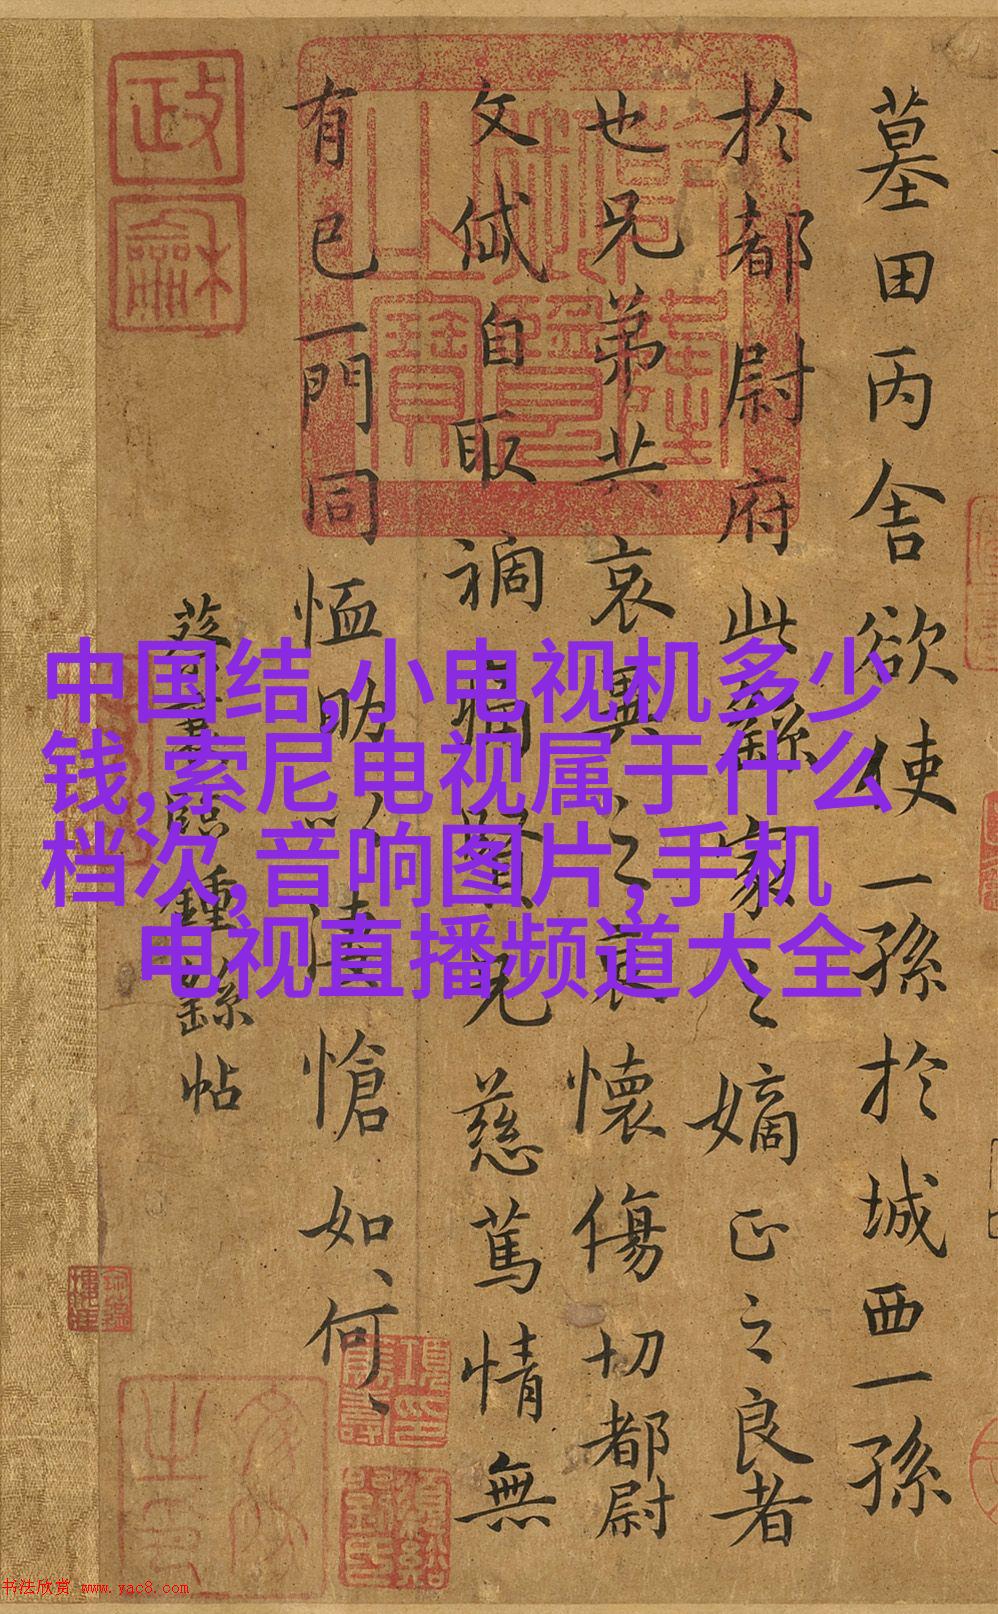 墓田丙舍欲使一孫於城西一孫
於都尉府此繇家之嫡正之良者
也兄弟共哀異之哀懷傷切都尉
文岱自取禍痛賢兄慈篤情無
有已一門同恤助以悽愴如、何、
蔡襄臨鍾繇帖
政龢
中国结,小电视机多少
钱,索尼电视属于什么
档次,音响图片,手机
电视直播频道大全
书法欣赏 www.yac8.com